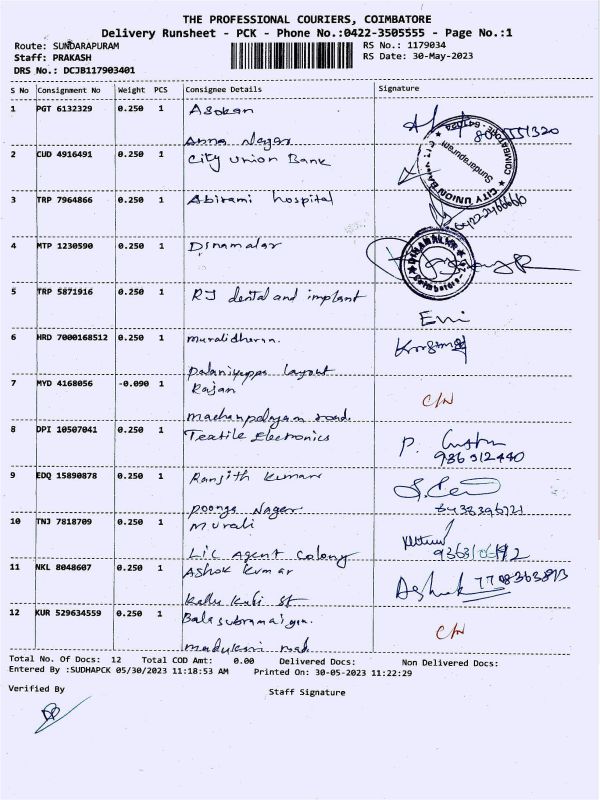 THE PROFESSIONAL COURIERS, COIMBATORE
Delivery Runsheet - PCK - Phone No.:0422-3505555 - Page No.:1
Route: SUNDARAPURAM RS No.: 1179034
Staff: PRAKASH RS Date: 30-May-2023
DRS No.: DCJB117903401
S No Consignment No Weight PCS Consignee Details Signature
1 PGT 6132329 0.250 1 Asokan
Anna Nagar
2 CUD 4916491 0.250 1 City Union Bank
CITY UNION BANK
Sundarapuram
COIMBATORE
3 TRP 7964866 0.250 1 Abirami hospital
4 MTP 1230590 0.250 1 Dinamalar
DINAMALAR
Coimbatore
5 TRP 5871916 0.250 1 RJ dental and implant
6 HRD 7000168512 0.250 1 Muralidharan.
Palaniyappa Layout
7 MYD 4168056 -0.090 1 Rajan C/N
Machanpalayam road.
8 DPI 10507041 0.250 1 Textile Electronics P.
9 EDQ 15890878 0.250 1 Ranjith Kumar
Poonga Nagar
10 TNJ 7818709 0.250 1 Murali
LIC Agent Colony
11 NKL 8048607 0.250 1 Ashok Kumar Ashok
St
12 KUR 529634559 0.250 1 C/N
road
Total No. Of Docs: 12 Total COD Amt: 0.00 Delivered Docs: Non Delivered Docs:
Entered By :SUDHAPCK 05/30/2023 11:18:53 AM Printed On: 30-05-2023 11:22:29
Verified By Staff Signature